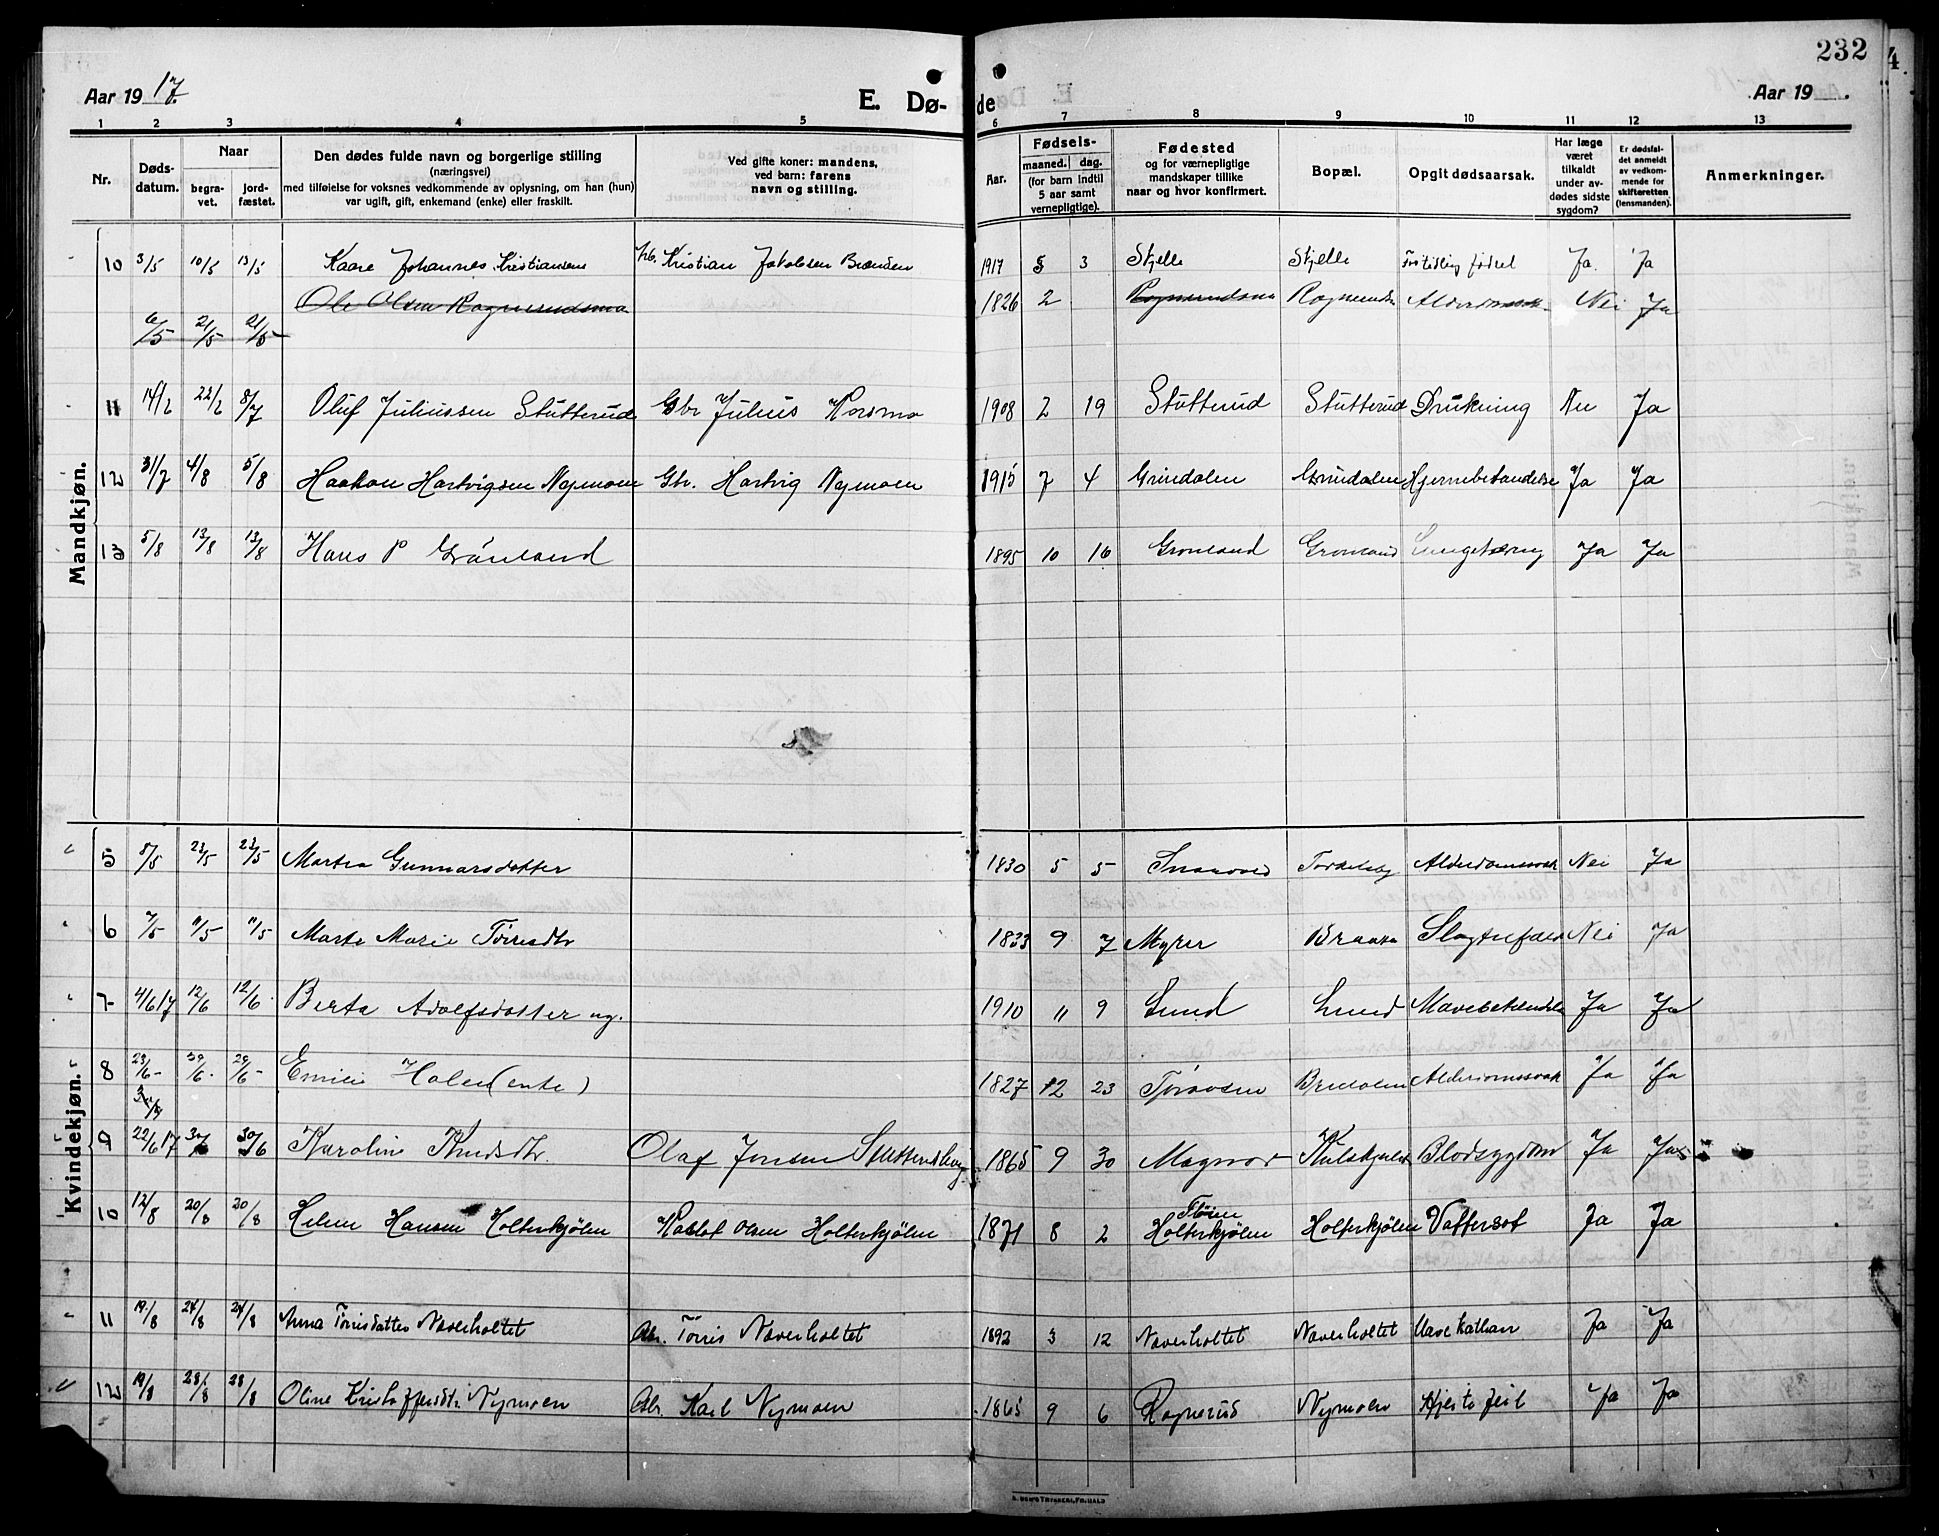 232
Aar 1917.
E. Dø-
de
Aar 19
1 2 3 4 5 6 7 8 9 10 11 12 13
Nr. Døds-datum. Naar begra-vet. jord-fæstet. Den dødes fulde navn og borgerlige stilling (næringsvei) med tilføielse for voksnes vedkommende av oplysning, om han (hun) var ugift, gift, enkemand (enke) eller fraskilt. Ved gifte koner: mandens, ved barn: farens navn og stilling. Aar. Fødsels- maaned. dag. (for barn indtil 5 aar samt vernepligtige). Fødested og for værnepligtige mandskaper tillike naar og hvor konfirmert. Bopæl. Opgit dødsaarsak. Har læge været tilkaldt under av-dødes sidste sygdom? Er dødsfal-det anmeldt av vedkom-mende for skifteretten (lensmanden). Anmerkninger.
Mandkjøn.
10 3/5 10/5 13/5 Kaare Johannes Kristiansen Kristian Jakobsen Brænden 1917 5 3 Skjelle Skjelle Fortidlig fødsel Ja Ja
Ole Olsen Rognerudsmo 1826 2 Nei Ja
6/5 21/5 21/5
11 14/6 22/6 8/7 Oluf Juliussen Stutterud Gbr Julius Korsmo 1908 2 19 Stutterud Stutterud Drukning Nei Ja
12 31/7 4/8 5/8 Haakon Hartvigsen Nymoen Gbr. Hartvig Nymoen 1915 7 4 Grindalen Grindalen Hjernebetændelse Ja Ja
13 5/8 13/8 13/8 Hans P Grønland 1895 10 16 Gronland Gronland Lungetæring Ja Ja
Kvindekjøn.
5 8/5 23/5 23/5 Martea Gunnarsdotter 1830 5 5 Alderdomssvak Nei Ja
6 7/5 11/5 11/5 Marte Marie Tørresdtr 1833 9 7 Myrer Braaten Nei Ja
7 4/6 17 12/6 12/6 Berta Adolfsdotter ug. 1910 11 9 Lund Lund Mavebetændelse Ja Ja
8 23/6 29/6 29/6 Emilie Holen (enke) 1827 12 23 Alderdomssvak Ja Ja
9 22/6 17 30/6 30/6 Karoline Knudsdtr. Olaf Jensen Stutterudberg 1865 9 30 Magnor Blodsygdom Ja Ja
10 12/8 20/8 20/8 Helene Hansen Holterkjølen Olsen Holterkjølen 1871 8 2 Holterkjølen Holterkjølen Vattersot Ja Ja
11 19/8 24/8 24/8 Anna Tørrisdatter Naverholtet Tørris Naverholtet 1892 3 12 Naverholtet Naverholtet Mavekathar Ja Ja
12 19/8 28/8 28/8 Oline Kristoffersdtr. Nymoen Karl Nymoen 1865 9 6 Rognerud Nymoen Hjertefeil Ja Ja